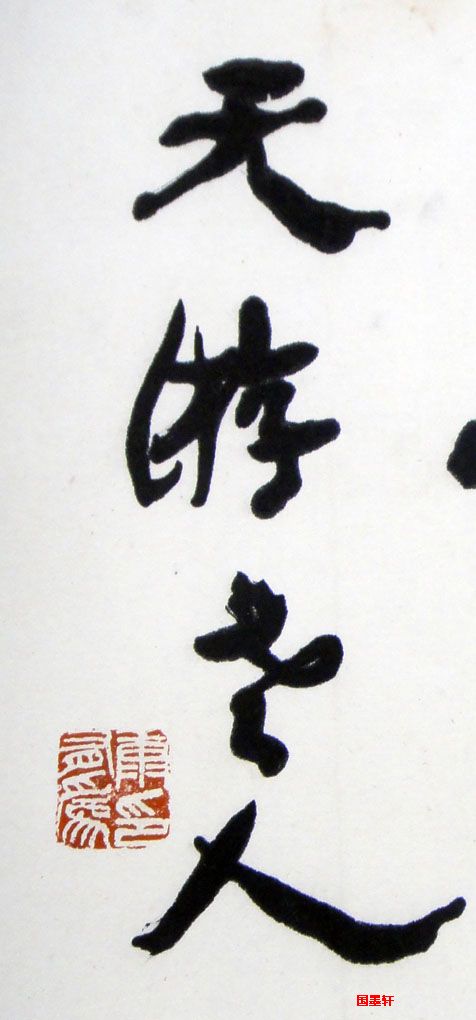 天游老人
国墨轩